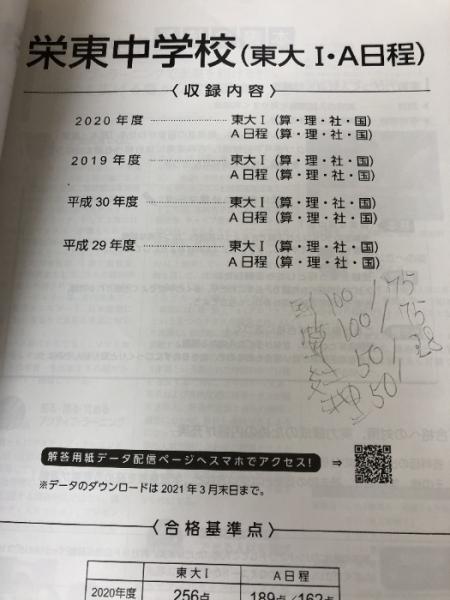 栄東中学校(東大Ⅰ・A日程)
〈収録内容〉
2020年度 ……………… 東大Ⅰ(算・理・社・国)
A日程(算・理・社・国)
2019年度 ……………… 東大Ⅰ(算・理・社・国)
A日程(算・理・社・国)
平成30年度 ……………… 東大Ⅰ(算・理・社・国)
A日程(算・理・社・国)
平成29年度 ……………… 東大Ⅰ(算・理・社・国)
A日程(算・理・社・国)
100/75
算 100/75
50/38
50/
解答用紙データ配信ページへスマホでアクセス! ⇒
※データのダウンロードは2021年3月末日まで。
〈合格基準点〉
東大Ⅰ A日程
2020年度 256点 189点/162点